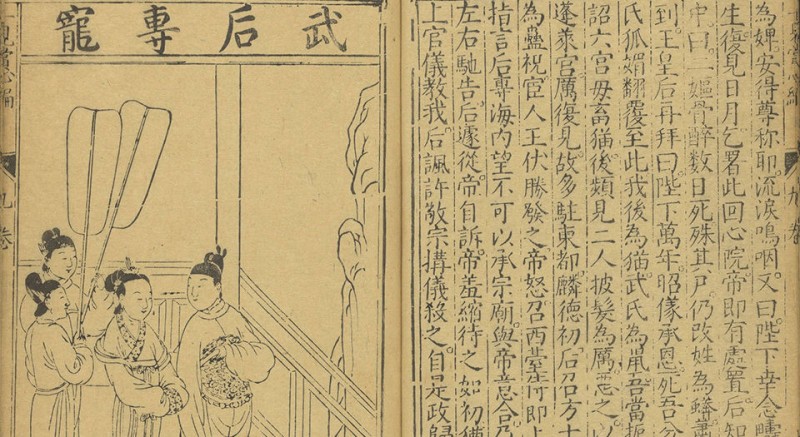 為婢。安得尊称耶。流淚嗚咽。又曰。陛下幸念疇
生復見日月。乞署此回心院。帝即有處置。后知
中曰。二嫗骨醉。数日死。殊其尸。仍改姓為蟒。肅
到。王皇后再拜曰。陛下萬年。昭儀承恩。死吾分
氏狐媚翻覆至此。我後為猫。武氏為鼠。吾當扼
詔六宮毋畜猫。後頻見二人披髮為厲。惡之。以
蓬萊宮。厲復見。故多駐東都。麟德初。后召方士
為蠱祝。宦人王伏勝發之。帝怒。召西臺侍郎上
指言后專海內望不可以承宗廟。與帝意合。乃
左右馳告后。遽從帝自訴。帝羞縮。待之如初。猶
上官儀教我。后諷許敬宗搆儀殺之。自是政歸
武后專寵
九卷
九卷